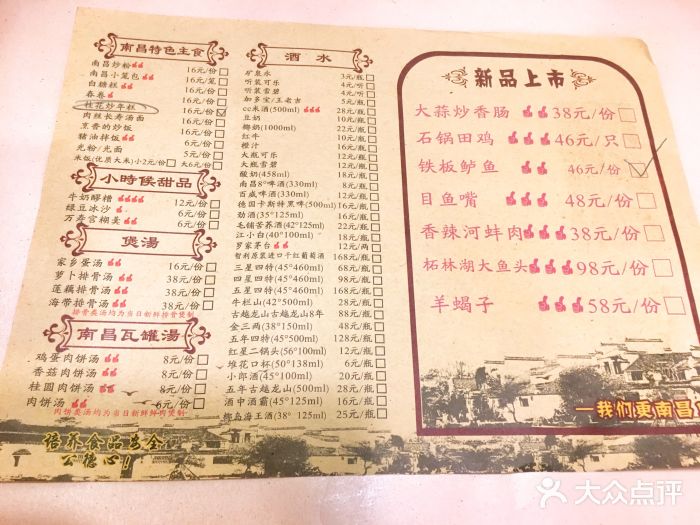 南昌特色主食
南昌炒粉 16元/份
南昌小笼包 16元/笼
白糖糕 16元/份
春卷 16元/份
桂花炒年糕 16元/份
肉丝长寿汤面 16元/份
京酱的炒饭 16元/份
猪油拌饭 6元/份
光粉/光面 5元/份
米饭(优质大米)小2元/份 大6元/份
小時候甜品
牛奶醪糟 12元/份
绿豆冰沙 6元/份
万寿宫糊羹 6元/份
煲湯
家乡蛋汤 16元/份
萝卜排骨汤 38元/份
莲藕排骨汤 38元/份
海带排骨汤 38元/份
排骨类汤均为当日新鲜排骨煲制
南昌瓦罐湯
鸡蛋肉饼汤 8元/份
香菇肉饼汤 8元/份
桂圆肉饼汤 8元/份
肉饼汤 6元/份
肉饼类汤均为当日新鲜鲜肉煲制
培养食品安全
公德心!
酒水
矿泉水 3元/瓶
听装可乐 4元/听
听装雪碧 4元/听
加多宝/王老吉 5元/瓶
cc米酒(500ml) 28元/瓶
豆奶 10元/瓶
椰奶(1000ml) 22元/瓶
红牛 10元/瓶
橙汁 16元/瓶
大瓶可乐 12元/瓶
大瓶雪碧 12元/瓶
酸奶(458ml) 18元/瓶
南昌8°啤酒(330ml) 8元/瓶
百威啤酒(330ml) 12元/瓶
德国卡斯特黑啤(500ml) 16元/瓶
劲酒(35°125ml) 16元/瓶
毛铺苦荞酒(42°125ml) 22元/瓶
江小白(40°100ml) 18元/瓶
罗家茅台 12元/两
智利原装进口干红葡萄酒 168元/瓶
三星四特(45°460ml) 68元/瓶
四星四特(45°460ml) 88元/瓶
五星四特(45°460ml) 108元/瓶
牛栏山(42°500ml) 28元/瓶
古越龙山古越龙山8年 88元/瓶
金三两(38°150ml) 48元/瓶
五年四特(45°100ml) 28元/瓶
红星二锅头(56°100ml) 12元/瓶
堆花口杯(50°138ml) 6元/瓶
小郎酒(45°100ml) 20元/瓶
五年古越龙山(500ml) 28元/瓶
酒中酒霸(45°100ml) 16元/瓶
椰岛海王酒(38°125ml) 25元/瓶
新品上市
大蒜炒香肠 38元/份
石锅田鸡 46元/只
铁板鲈鱼 46元/份
目鱼嘴 48元/份
香辣河蚌肉 38元/份
柘林湖大鱼头 98元/份
羊蝎子 58元/份
—我们更南昌
大众点评